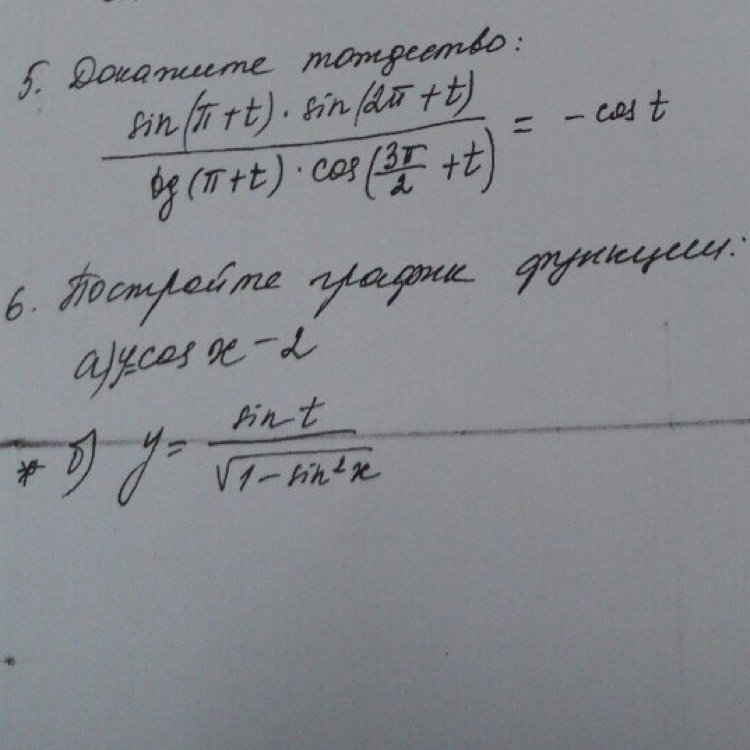 5. Докажите тождество:
sin(π+t) · sin(2π+t) / tg(π+t) · cos(3π/2 +t) = - cos t
6. Постройте график функции:
а) y=cos x - 2
* б) y = sin t / √1-sin²x